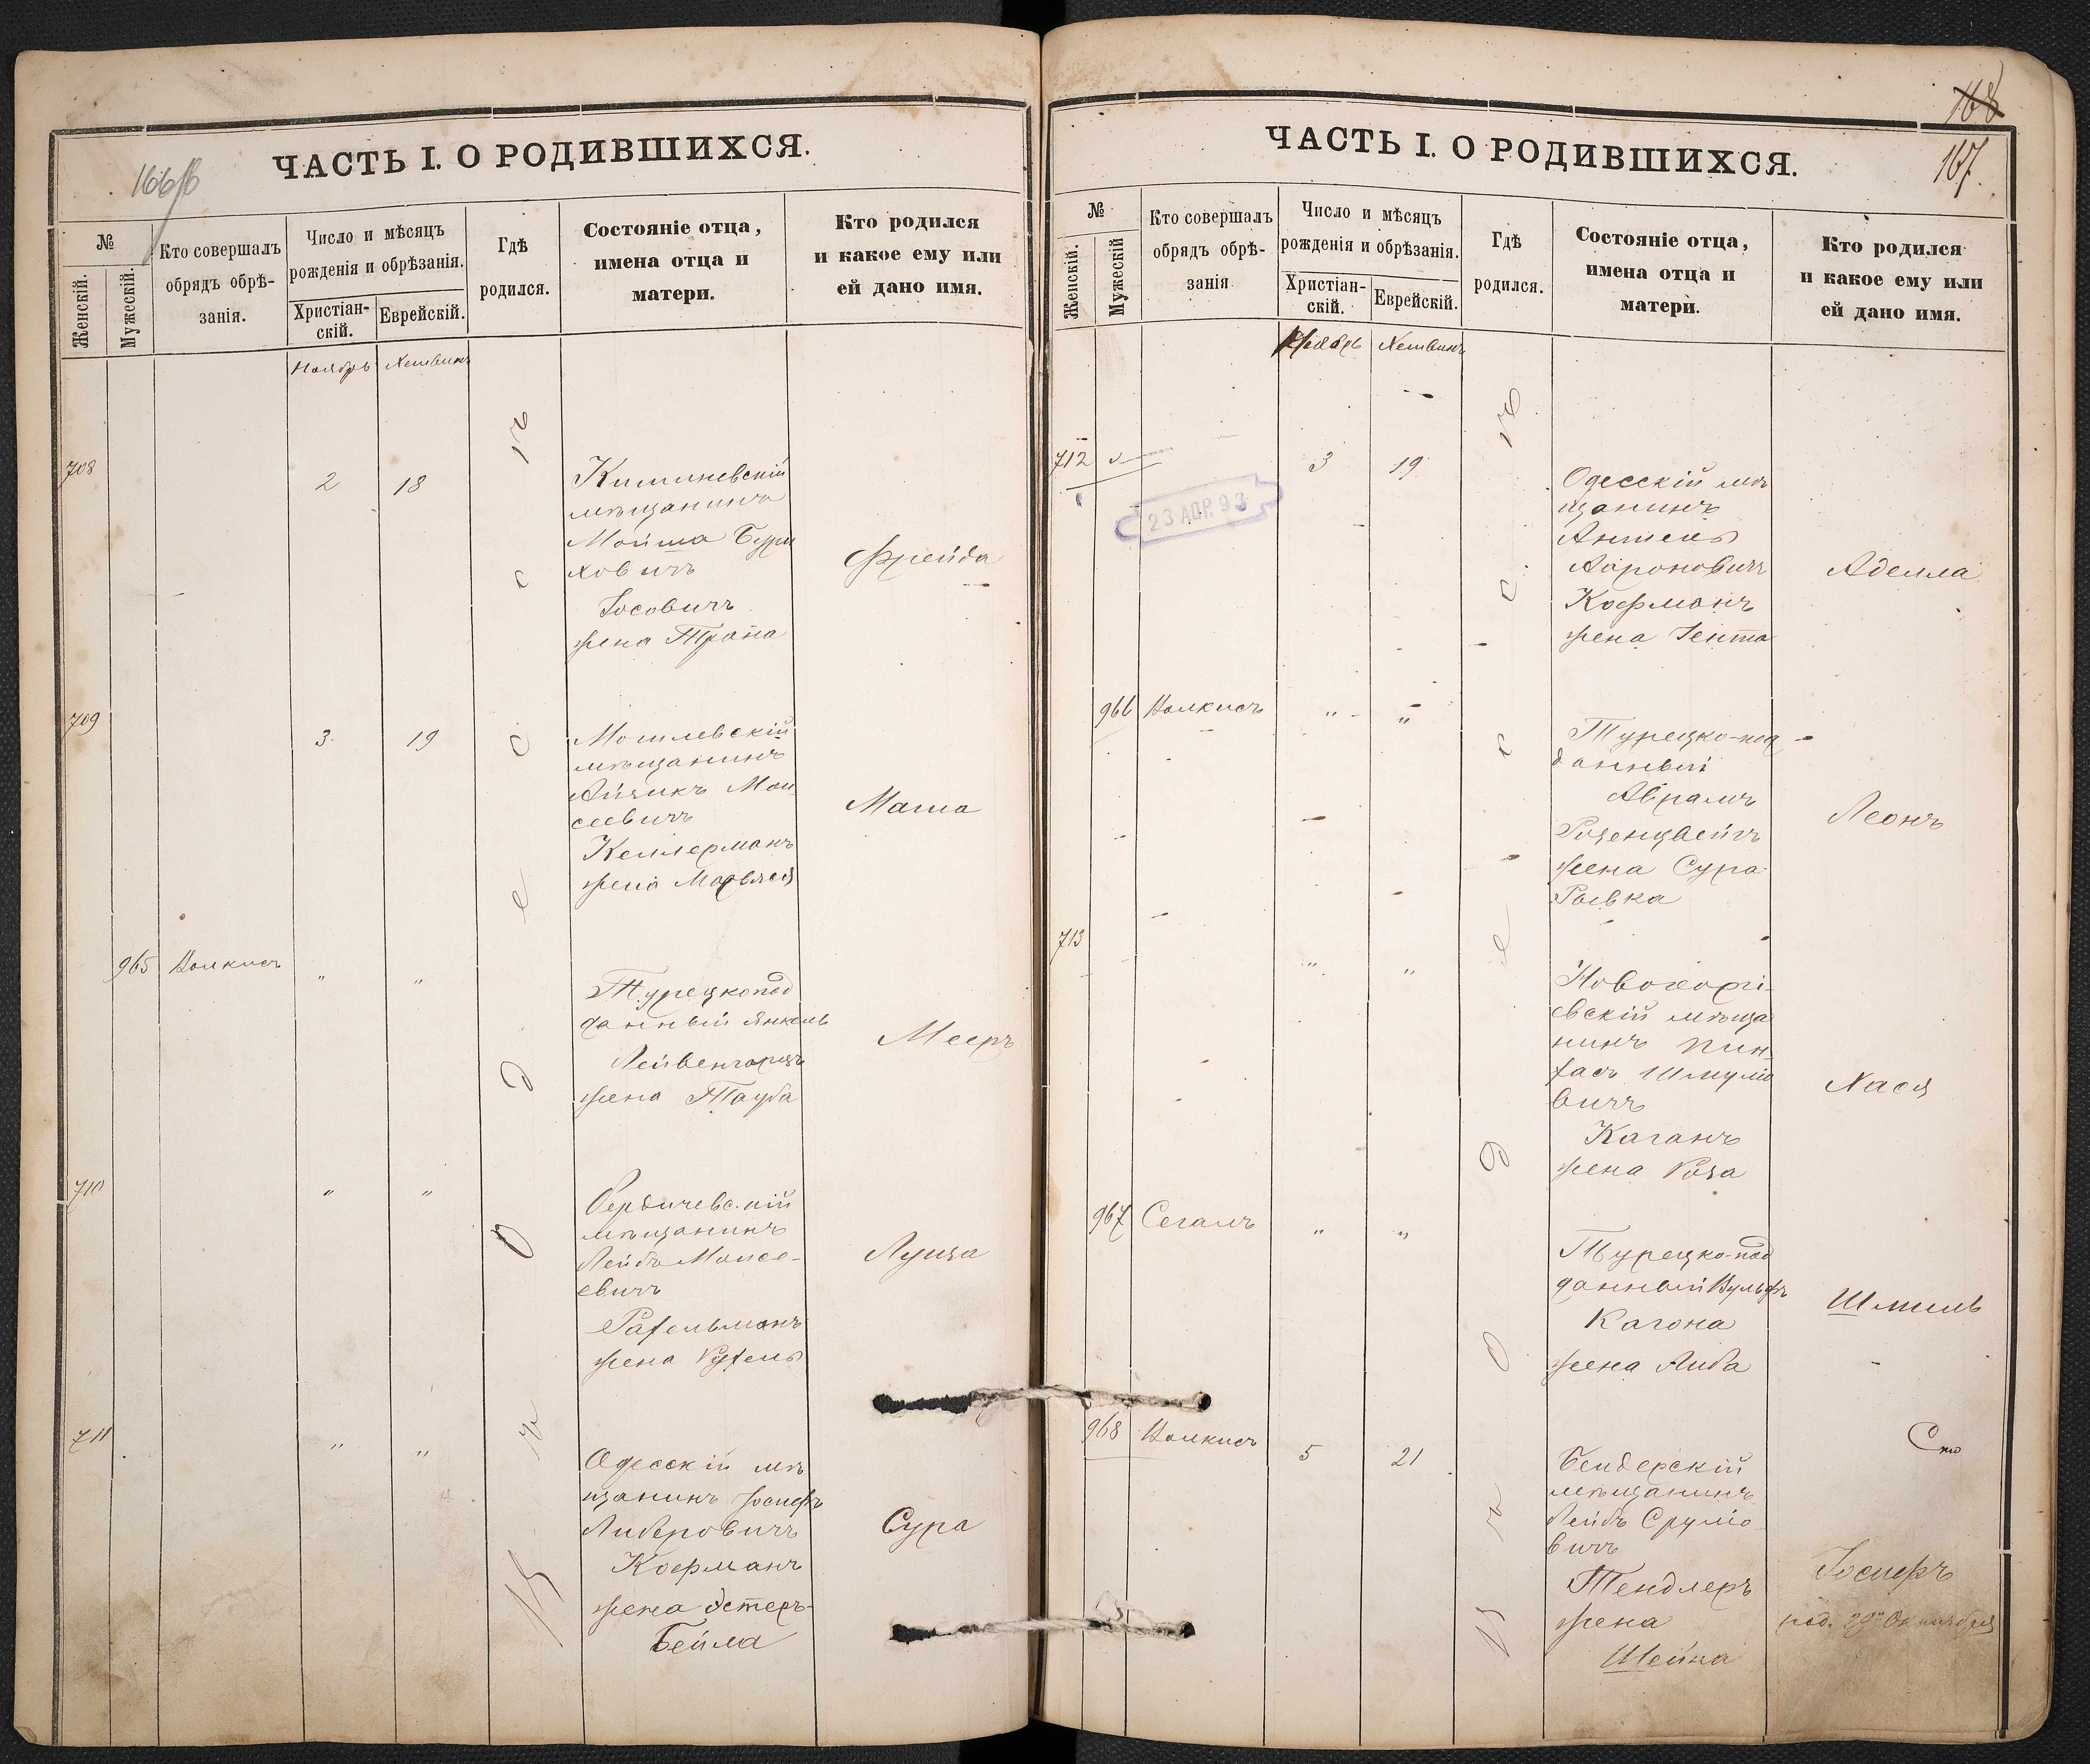 166об
ЧАСТЬ I. О РОДИВШИХСЯ.
№
Женскій.
Мужескій.
Кто совершалъ
обрядъ обрѣ-
занія.
Число и мѣсяцъ
рожденія и обрѣзанія.
Христіан-
скій.
Еврейскій.
Гдѣ
родился.
Состояніе отца,
имена отца и
матери.
Кто родился
и какое ему или
ей дано имя.
Ноябрь Хешванъ
Въ Одессѣ
708
2 18
Кишиневскій
мѣщанинъ
Мойша Буру
ховичъ
Іосовичъ
жена Трана
Фрейда
709
3 19
Могилевскій
мѣщанинъ
Айзикъ Мои
сеевичъ
Келлерманъ
жена Марьяся
Маша
965 Волкисъ
" "
Турецкопод
данный Янкель
Лейвенгарцъ
жена Тауба
Мееръ
710
" "
Бердичевскій
мѣщанинъ
Лейбъ Моисе-
евичъ
Рахельманъ
жена Рухель
Луиза
711
" "
Одесскій мѣ
щанинъ Іосифъ
Либеровичъ
Кофманъ
жена Эстеръ-
Бейла
Сура
168
167.
ЧАСТЬ I. О РОДИВШИХСЯ.
№
Женскій.
Мужескій
Кто совершалъ
обрядъ обрѣ-
занія
Число и мѣсяцъ
рожденія и обрѣзанія.
Христіан-
скій.
Еврейскій.
Гдѣ
родился.
Состояніе отца,
имена отца и
матери.
Кто родился
и какое ему или
ей дано имя.
Ноябрь Хешванъ
Въ Одессѣ
712
23 АПР. 93
3 19
Одесскій мѣ
щанинъ
Аншель
Аароновичъ
Кофманъ
жена Іента
Аделла
966 Волкисъ
" "
Турецко-под
данный
Аврамъ
Розенцвейгъ
жена Сура
Ривка
Леонъ
713
" "
Новогеоргі-
евскій мѣща
нинъ Пин-
хасъ Шмуліо
вичъ
Каганъ
жена Роза
Хася
967 Сегалъ
" "
Турецко-под
данный Вульфъ
Кагона
жена Либа
Шмиль
968 Волкисъ
5 21
Бендерскій
мѣщанинъ
Лейбъ Сруліо
вичъ
Тендлеръ
жена
Шейна
Іосифъ
род. 29го Октября